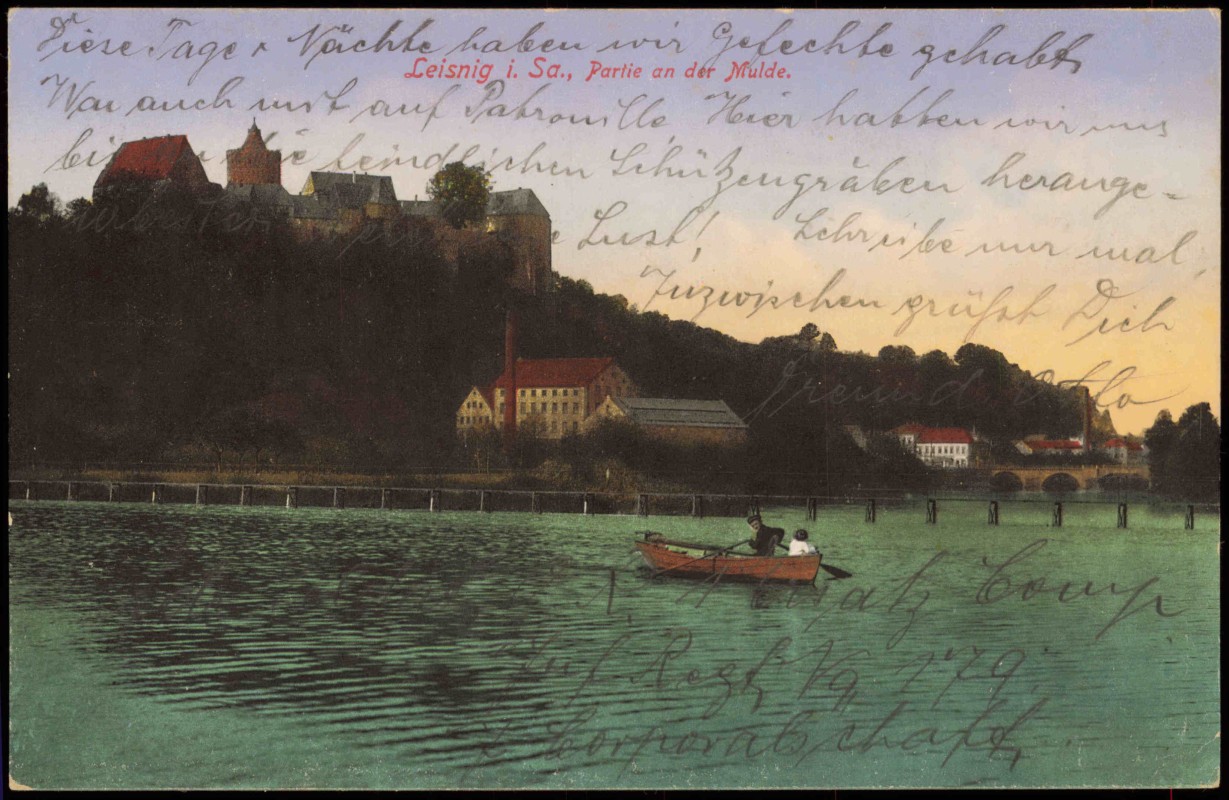 Diese Tage & Nächte haben wir Gefechte gehabt
Leisnig i. Sa., Partie an der Mulde.
War auch mit auf Patrouille. Hier hatten wir uns
feindlichen Schützengräben herange=
Lust! Schreibe nur mal,
Inzwischen grüßt Dich
Freund Otto
1. Ersatz Comp
Inf. Regt No 179.
Corporalschaft.